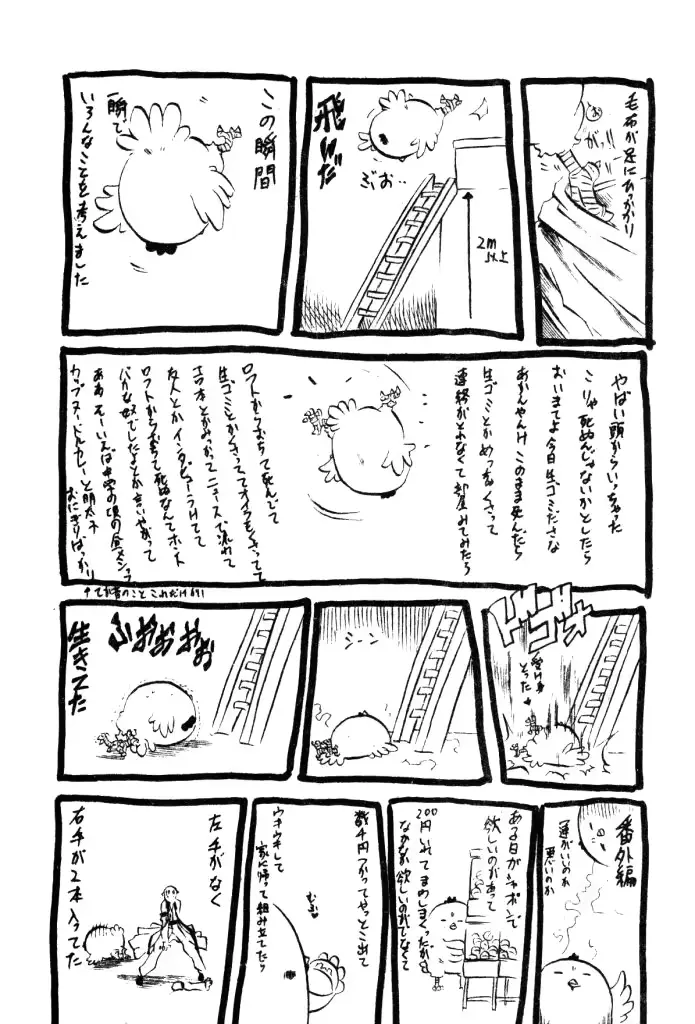 毛布が足にひっかかり
ガッ!!
飛んだ
ぶお‥
2m
以上
この瞬間
一瞬で
いろんなことを考えました
やばい頭からいっちゃった
こりゃ死ぬんじゃないかとしたら
おいまてよ今日生ゴミださな
あかんやんけ このまま死んだら
生ゴミとかめっちゃくさって
連絡がとれなくて部屋みてみたら
ロフトからおちて死んでて
生ゴミとかくさっててオイラもくさってて
エロ本とかみつかってニュースで流れて
友人とかインタビューうけてて
ロフトからおちて死ぬなんてホント
バカな奴でしたよとか言いやがって
ああ そーいえば中学の頃の昼メシって
カップヌードルカレーと明太子
おにぎりばっかり
ドゴォ
受け身
とった
シーン
ふおおおおお
生きてた
番外編
運がいいのか
悪いのか
ある日ガシャポンで
欲しいのがあって
200円いれてまわしまくったが
なかなか欲しいのがでなくて
数千円つかってやっとこ出て
ウキウキして
家に帰って組み立てたら
左手がなく
右手が2本入ってた